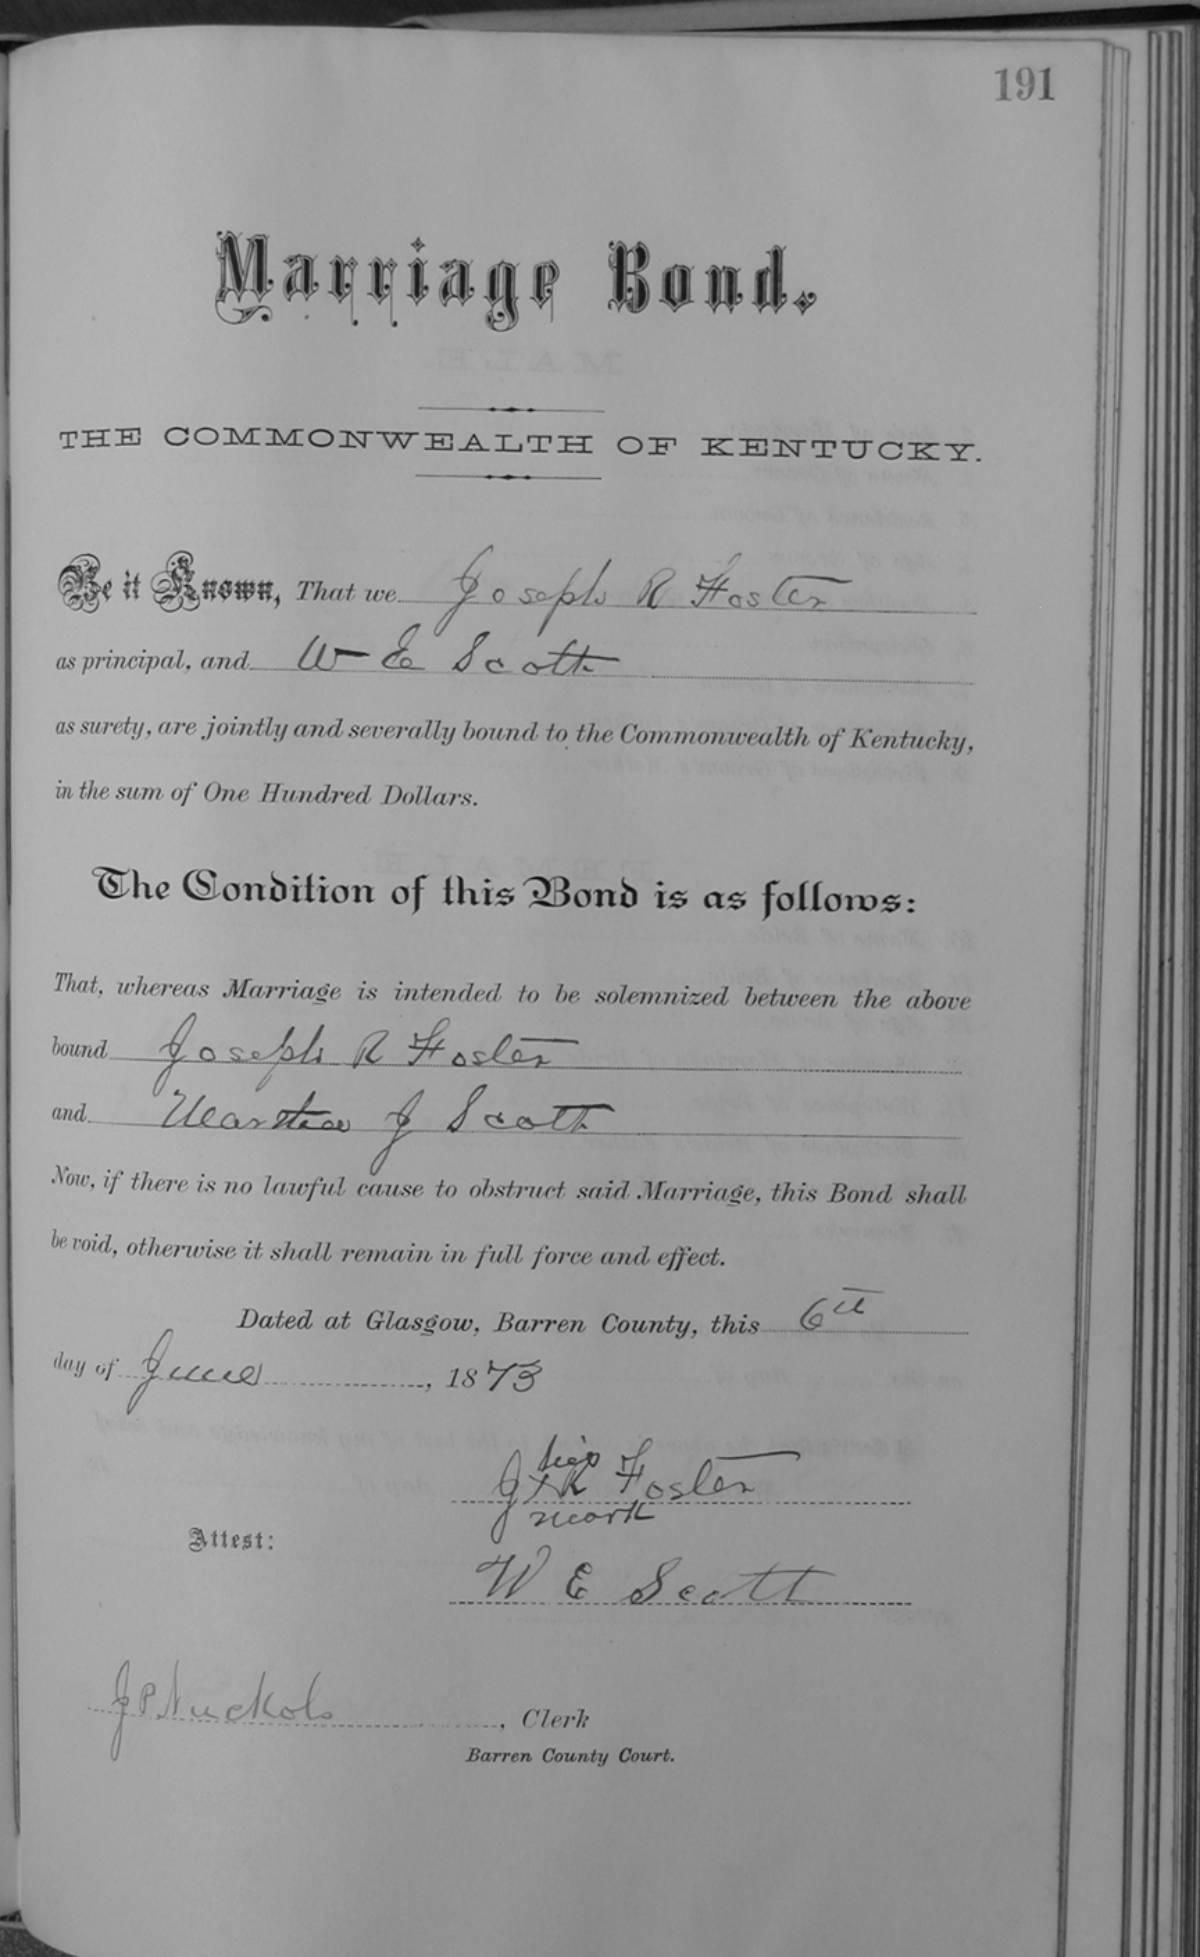 191
Marriage Bond.
THE COMMONWEALTH OF KENTUCKY.
Be it Known, That we Joseph R Foster
as principal, and W E Scott
as surety, are jointly and severally bound to the Commonwealth of Kentucky,
in the sum of One Hundred Dollars.
The Condition of this Bond is as follows:
That, whereas Marriage is intended to be solemnized between the above
bound Joseph R Foster
and Martha J Scott
Now, if there is no lawful cause to obstruct said Marriage, this Bond shall
be void, otherwise it shall remain in full force and effect.
Dated at Glasgow, Barren County, this 6th
day of June, 1873
his
J x R Foster
mark
Attest:
W E Scott
J P Nuckols, Clerk
Barren County Court.